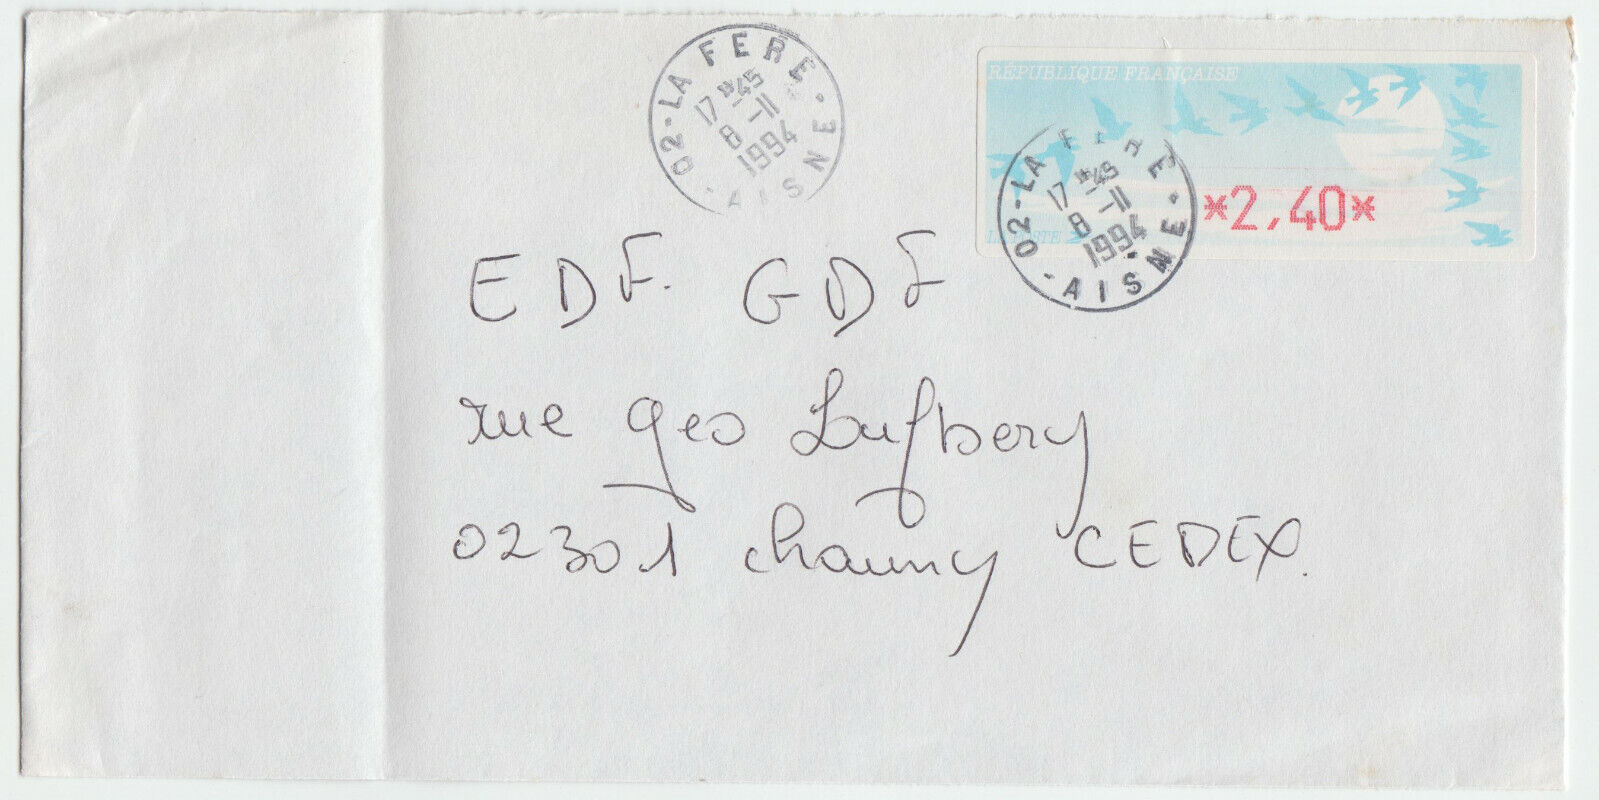 02-LA FERE
17 H45
8-11
1994
-AISNE-
RÉPUBLIQUE FRANÇAISE
*2,40*
LA POSTE
02-LA FERE
17 H45
8-11
1994
-AISNE-
EDF. GDF
rue Geo Lufbery
02301 Chauny CEDEX.